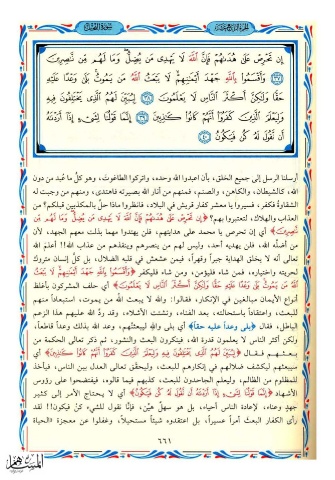 إِن تَحْرِصْ عَلَىٰ هُدَىٰهُمْ فَإِنَّ ٱللَّهَ لَا يَهْدِى مَن يُضِلُّ ۖ وَمَا لَهُم مِّن نَّـٰصِرِينَ
﴿٣٧﴾ وَأَقْسَمُوا۟ بِٱللَّهِ جَهْدَ أَيْمَـٰنِهِمْ لَا يَبْعَثُ ٱللَّهُ مَن يَمُوتُ بَلَىٰ وَعْدًا عَلَيْهِ
حَقًّا وَلَـٰكِنَّ أَكْثَرَ ٱلنَّاسِ لَا يَعْلَمُونَ ﴿٣٨﴾ لِيُبَيِّنَ لَهُمُ ٱلَّذِى يَخْتَلِفُونَ فِيهِ
وَلِيَعْلَمَ ٱلَّذِينَ كَفَرُوٓا۟ أَنَّهُمْ كَانُوا۟ كَـٰذِبِينَ ﴿٣٩﴾ إِنَّمَا قَوْلُنَا لِشَىْءٍ إِذَآ أَرَدْنَـٰهُ
أَن نَّقُولَ لَهُۥ كُن فَيَكُونُ ﴿٤٠﴾
أرسلنا الرسل إلى جميع الخلق، بأن اعبدوا الله وحده، واتركوا الطاغوت، وهو كل ما عُبد من دون
الله، كالشيطان، والكاهن، والصنم، فمنهم من أنار الله بصيرته فاهتدى، ومنهم من وجبت له
الشقاوة فكفر، فسيروا يا معشر كفار قريش في البلاد، فانظروا ماذا حلّ بالمكذبين قبلكم؟ من
العذاب والهلاك، لتعتبروا بهم؟ ﴿إِن تَحْرِصْ عَلَىٰ هُدَىٰهُمْ فَإِنَّ ٱللَّهَ لَا يَهْدِى مَن يُضِلُّ وَمَا لَهُم مِّن
نَّـٰصِرِينَ﴾ أي إن تحرص يا محمد على هدايتهم، فلن يهتدوا مهما بذلت معهم الجهد، لأن
من أضله الله، فلن يهديه أحد، وليس لهم من ينصرهم وينقذهم من عذاب الله!! أعلمَ الله
تعالى أنه لا يخلق الهداية جبراً وقهراً، فيمن عشعش في قلبه الضلال، بل كل إنسان متروك
لحريته واختياره، فمن شاء فليؤمن، ومن شاء فليكفر ﴿وَأَقْسَمُوا۟ بِٱللَّهِ جَهْدَ أَيْمَـٰنِهِمْ لَا يَبْعَثُ
ٱللَّهُ مَن يَمُوتُ بَلَىٰ وَعْدًا عَلَيْهِ حَقًّا وَلَـٰكِنَّ أَكْثَرَ ٱلنَّاسِ لَا يَعْلَمُونَ﴾ أي حلف المشركون بأغلظ
أنواع الأيمان مبالغين في الإنكار، فقالوا: والله لا يبعث الله من يموت، استبعاداً منهم
للبعث، واعتقاداً باستحالته، بعد الفناء، وتشتت الأشلاء، وقد ردّ الله عليهم هذا الزعم
الباطل، فقال ﴿بلى وعداً عليه حقاً﴾ أي بلى والله ليبعثنّهم، وعد الله بذلك وعداً قاطعاً،
ولكن أكثر الناس لا يعلمون قدرة الله، فينكرون البعث والنشور، ثم ذكر تعالى الحكمة من
بعثهم فقال ﴿لِيُبَيِّنَ لَهُمُ ٱلَّذِى يَخْتَلِفُونَ فِيهِ وَلِيَعْلَمَ ٱلَّذِينَ كَفَرُوٓا۟ أَنَّهُمْ كَانُوا۟ كَـٰذِبِينَ﴾ أي
سيبعثهم ليكشف ضلالهم في إنكارهم للبعث، وليحقق تعالى العدل بين الناس، فيأخذ
للمظلوم من الظالم، وليعلم الجاحدون للبعث، كذبهم فيما قالوه، فيفتضحوا على رؤوس
الأشهاد ﴿إِنَّمَا قَوْلُنَا لِشَىْءٍ إِذَآ أَرَدْنَـٰهُ أَن نَّقُولَ لَهُۥ كُن فَيَكُونُ﴾ أي لا يحتاج الأمر إلى كثير
جهدٍ وعناء، لإعادة الناس أحياء، بل هو سهلٌ هيّن، فإنا نقول للشيء كنْ فيكون!! لقد
رأى الكفار البعث أمراً عسيراً، بل اعتقدوه شيئاً مستحيلاً، وغفلوا عن معجزة «الحياة
٤٤١